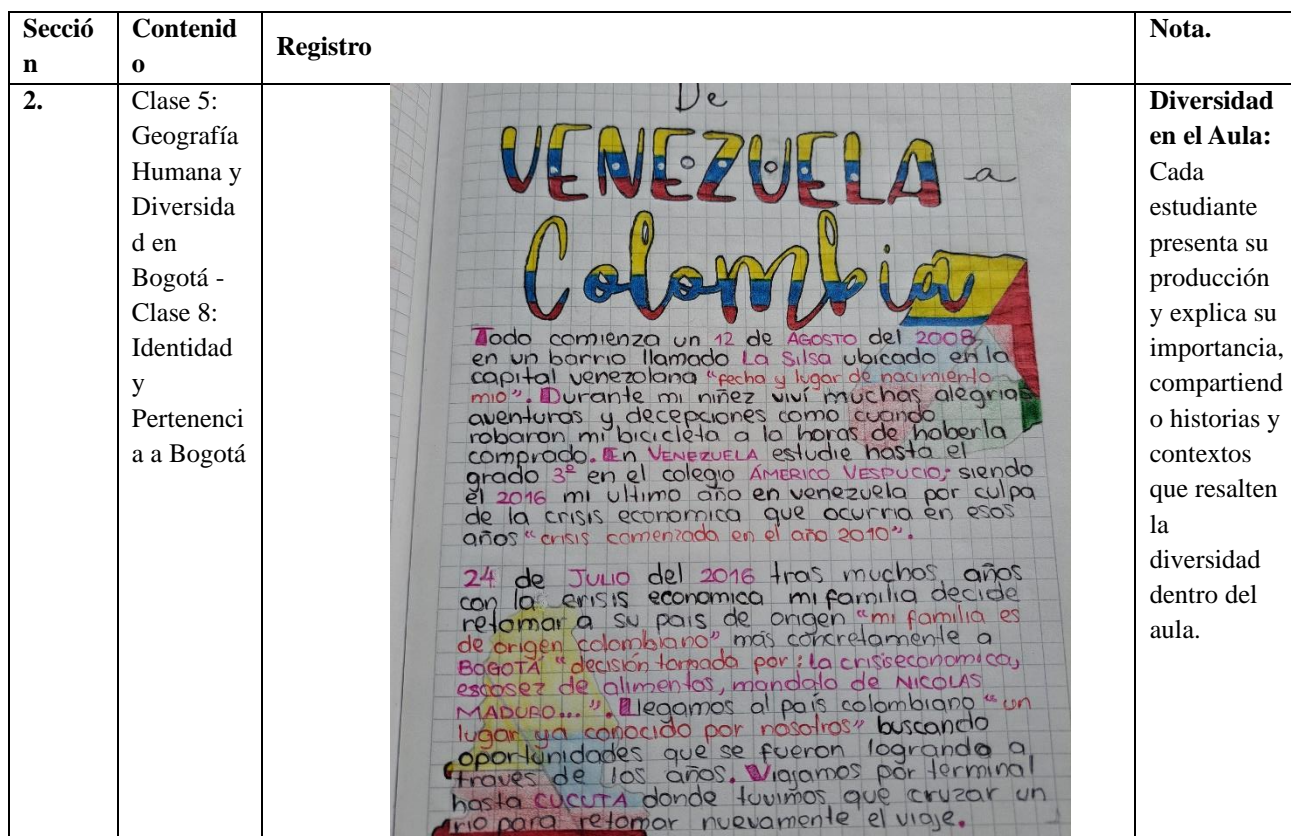 Secció
n
Contenid
o
Registro
Nota.
2.
Clase 5:
Geografía
Humana y
Diversida
d en
Bogotá -
Clase 8:
Identidad
y
Pertenenci
a a Bogotá
De
VENEZUELA a
Colombia
Todo comienza un 12 de AGOSTO del 2008
en un barrio llamado La Silsa ubicado en la
capital venezolana "fecha y lugar de nacimiento
mio". Durante mi niñez viví muchas alegrias
aventuras y decepciones como cuando
robaron mi bicicleta a la horas de haberla
comprado. En VENEZUELA estudie hasta el
grado 3º en el colegio ÁMERICO VESPUCIO; siendo
el 2016 mi ultimo año en venezuela por culpa
de la crisis economica que ocurria en esos
años "crisis comenzada en el año 2010".
24 de JULIO del 2016 tras muchos años
con la crisis economica mi familia decide
retomar a su pais de origen "mi familia es
de origen colombiano" más concretamente a
BOGOTÁ "decisión tomada por: la crisis economica,
escosez de alimentos, mandato de NICOLAS
MADURO...". Llegamos al país colombiano "un
lugar ya conocido por nosotros" buscando
oportunidades que se fueron logrando a
traves de los años. Viajamos por terminal
hasta CUCUTA donde tuvimos que cruzar un
rio para retomar nuevamente el viaje.
Diversidad
en el Aula:
Cada
estudiante
presenta su
producción
y explica su
importancia,
compartiend
o historias y
contextos
que resalten
la
diversidad
dentro del
aula.